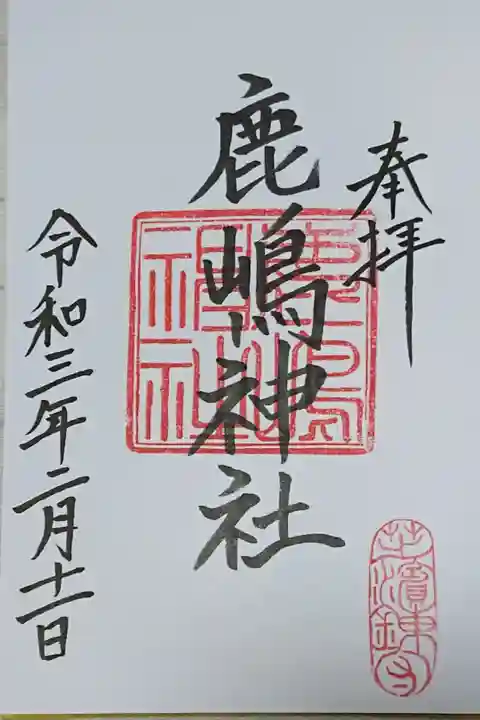 奉拝
鹿嶋神社
令和三年二月十一日